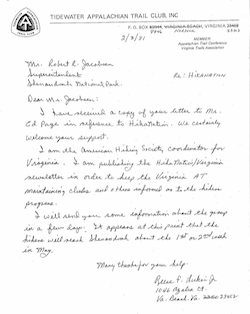 TIDEWATER APPALACHIAN TRAIL CLUB, INC
P. O. BOX
MEMBER
Appalachian Trail Conference
Virginia Trails Association
2/9/81
Mr. Robert R. Jacobsen
Superintendent
Shenandoah National Park
Re: HIKANATION
Dear Mr. Jacobsen:
I have received a copy of your letter to Mr.
Ed Page in reference to HikaNation. We certainly
welcome your support.
I am the American Hiking Society coordinator for
Virginia. I am publishing the HikaNation/Virginia
newsletter in order to keep the Virginia AT
maintaining clubs and others informed as to the hikers
progress.
I will send you some information about the group
in a few days. It appears at this point that the
hikers will reach Shenandoah about the 1st or 2nd week
in May.
Many thanks for your help.
Reese F. Jr.
1046 Azalea Ct.
Va. Beach, Va. 23452